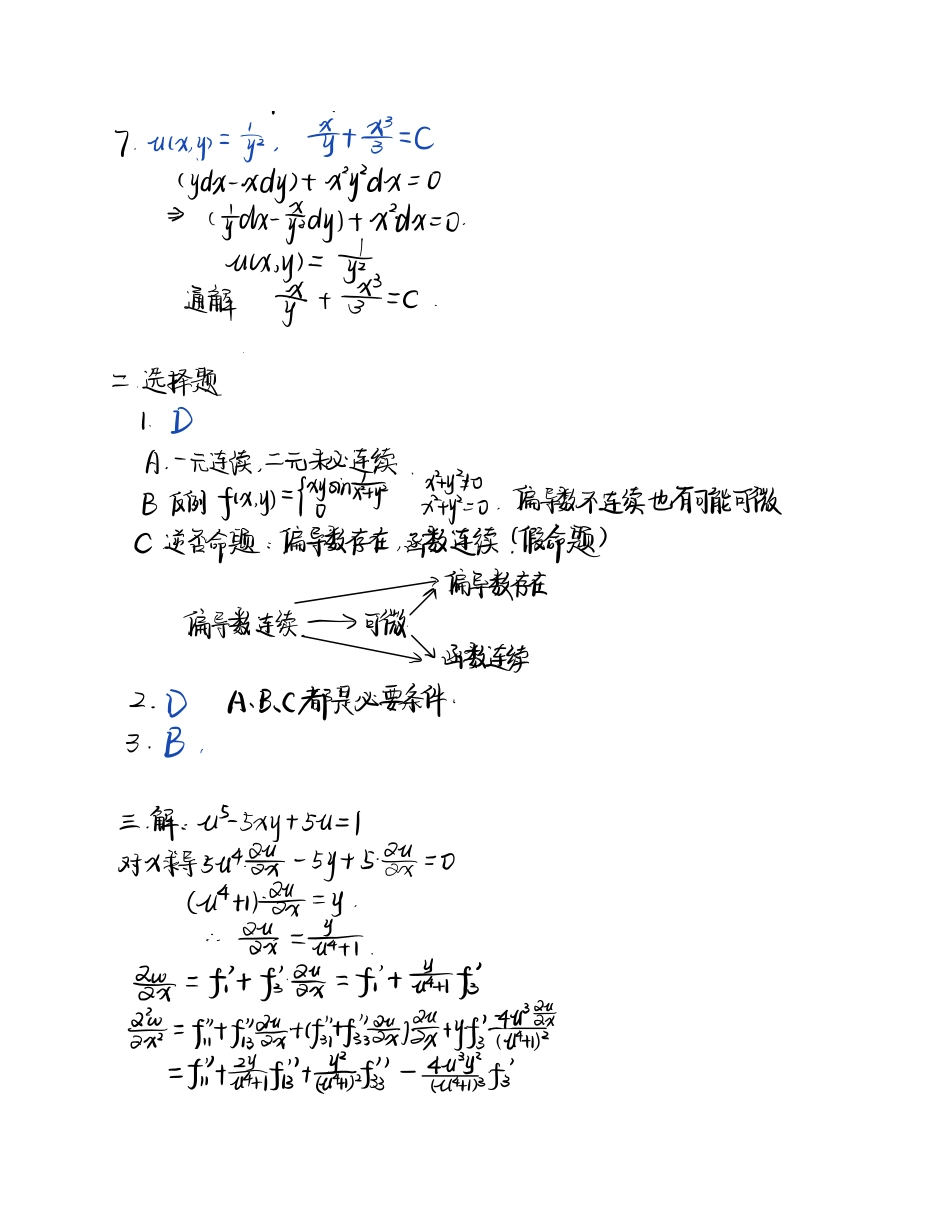 7. u(x,y) = 1/y², x/y + x³/3 = C
(ydx - xdy) + x²y²dx = 0
⇒ (1/y dx - x/y² dy) + x²dx = 0.
u(x,y) = 1/y²
通解 x/y + x³/3 = C.
二.选择题
1. D
A. 一元连续,二元未必连续.
B 反例 f(x,y) = { xy sin 1/√(x²+y²) x²+y²≠0
0 x²+y²=0. 偏导数不连续也有可能可微
C 逆否命题:偏导数存在,函数连续.(假命题)
偏导数存在
偏导数连续 → 可微
函数连续
2. D A、B、C都是必要条件.
3. B.
三.解: u⁵ - 5xy + 5u = 1
对x求导 5u⁴·∂u/∂x - 5y + 5·∂u/∂x = 0
(u⁴+1)·∂u/∂x = y.
∴ ∂u/∂x = y/(u⁴+1).
∂w/∂x = f₁' + f₃'·∂u/∂x = f₁' + y/(u⁴+1) f₃'
∂²w/∂x² = f₁₁'' + f₁₃'' ∂u/∂x + (f₃₁'' + f₃₃'' ∂u/∂x) ∂u/∂x + y f₃' · -4u³ ∂u/∂x/(u⁴+1)²
= f₁₁'' + 2y/(u⁴+1) f₁₃'' + y²/(u⁴+1)² f₃₃'' - 4u³y²/(u⁴+1)³ f₃'